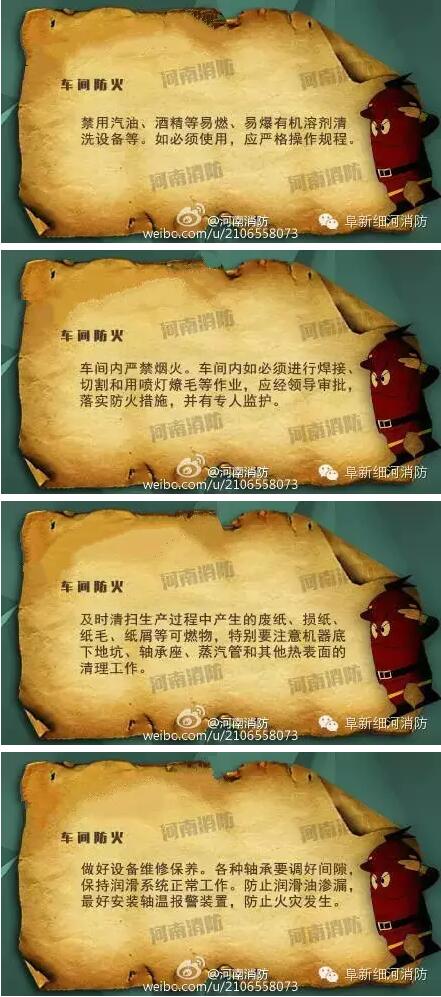 河南消防
河南消防
车间防火
禁用汽油、酒精等易燃、易爆有机溶剂清
洗设备等。如必须使用，应严格操作规程。
河南消防
河南消防
@河南消防
weibo.com/u/2106558073
阜新细河消防
河南消防
河南消防
车间防火
车间内严禁烟火。车间内如必须进行焊接、
切割和用喷灯燎毛等作业，应经领导审批，
落实防火措施，并有专人监护。
河南消防
河南消防
@河南消防
weibo.com/u/2106558073
阜新细河消防
河南消防
河南消防
车间防火
及时清扫生产过程中产生的废纸、损纸、
纸毛、纸屑等可燃物，特别要注意机器底
下地坑、轴承座、蒸汽管和其他热表面的
清理工作。
河南消防
河南消防
@河南消防
weibo.com/u/2106558073
阜新细河消防
河南消防
河南消防
车间防火
做好设备维修保养。各种轴承要调好间隙，
保持润滑系统正常工作。防止润滑油渗漏，
最好安装轴温报警装置，防止火灾发生。
河南消防
河南消防
@河南消防
weibo.com/u/2106558073
阜新细河消防